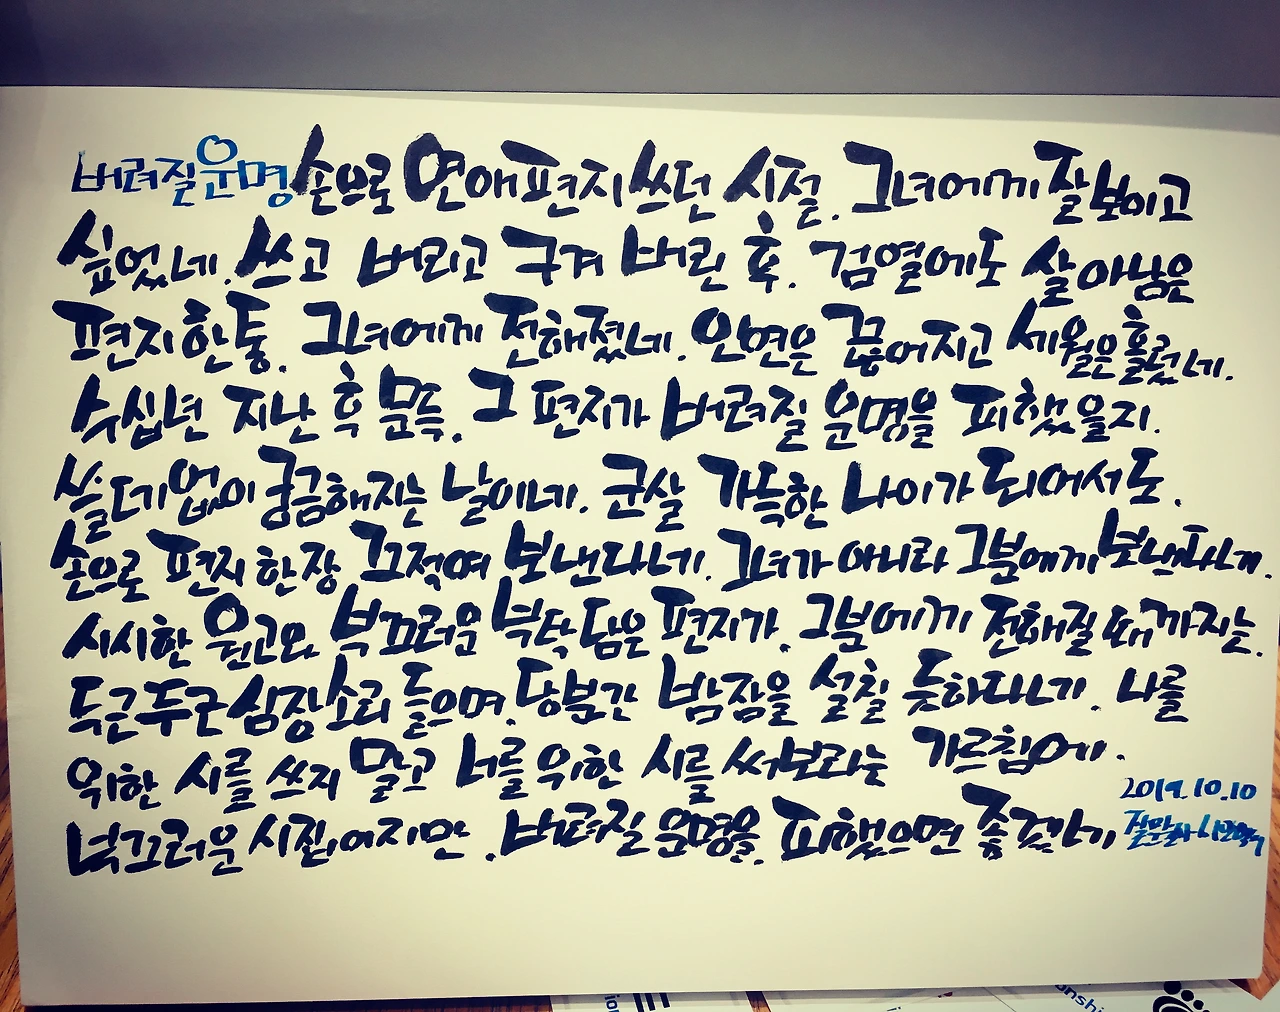 버려질 운명 손으로 연애편지 쓰던 시절. 그녀에게 잘 보이고
싶었네. 쓰고 버리고 구겨 버린 후. 검열에도 살아남은
편지 한 통. 그녀에게 전해졌네. 인연은 끊어지고 세월은 흘렀네.
수십년 지난 후 문득. 그 편지가 버려질 운명을 피했을지.
쓸데없이 궁금해지는 날이네. 군살 가득한 나이가 되어서도.
손으로 편지 한 장 끄적여 보낸다네. 그녀가 아니라 그분에게 보낸다네.
시시한 원고와 부끄러운 부탁 담은 편지가. 그분에게 전해질 때까지는.
두근두근 심장소리 들으며. 당분간 밤잠을 설칠 듯하다네. 나를
위한 시를 쓰지 말고 너를 위한 시를 써보라는 가르침에.
부끄러운 시집이지만. 버려질 운명을 피했으면 좋겠네
2019.10.10